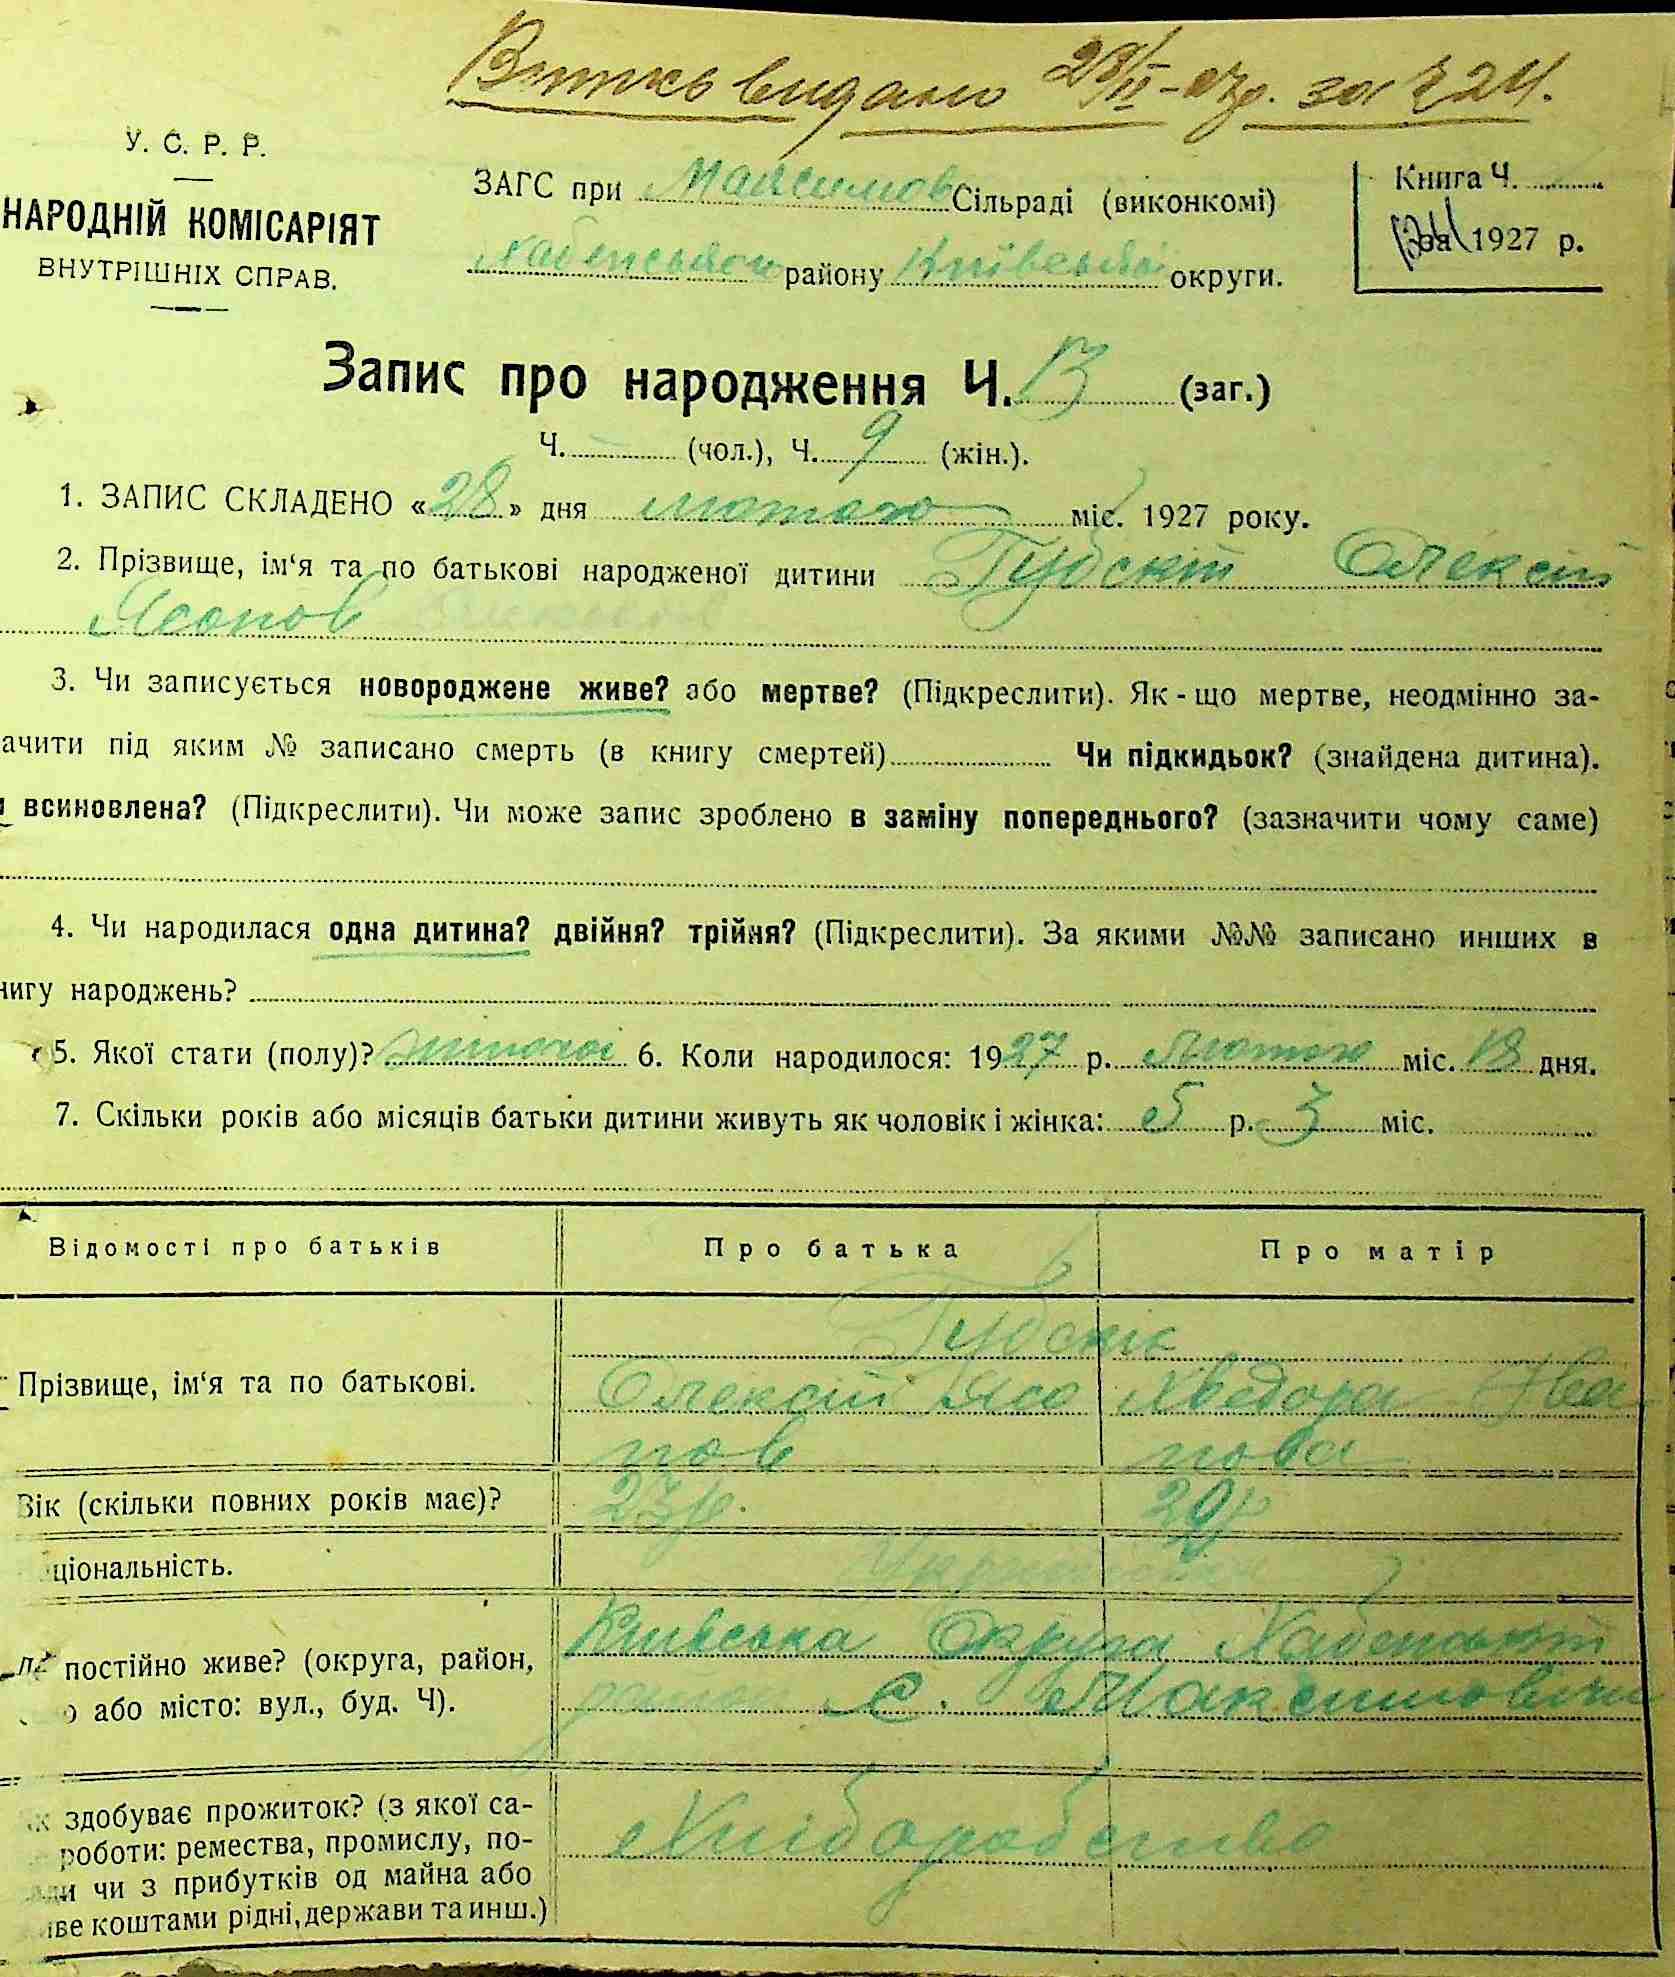 видано 28/II-27р. за Ч 24.
У. С. Р. Р.
НАРОДНІЙ КОМІСАРІЯТ
ВНУТРІШНІХ СПРАВ.
ЗАГС при Максимов Сільраді (виконкомі)
Хабенського району Київської округи.
Книга Ч.
1927 р.
Запис про народження Ч. 13 (заг.)
Ч. (чол.), Ч. 9 (жін.).
1. ЗАПИС СКЛАДЕНО «28» дня лютого міс. 1927 року.
2. Прізвище, ім'я та по батькові народженої дитини Губскій Олексій
3. Чи записується новороджене живе? або мертве? (Підкреслити). Як-що мертве, неодмінно за-
ачити під яким № записано смерть (в книгу смертей) Чи підкидьок? (знайдена дитина).
всиновлена? (Підкреслити). Чи може запис зроблено в заміну попереднього? (зазначити чому саме)
4. Чи народилася одна дитина? двійня? трійня? (Підкреслити). За якими №№ записано инших в
нигу народжень?
5. Якої стати (полу)? жіночої 6. Коли народилося: 1927 р. лютого міс. 18 дня.
7. Скільки років або місяців батьки дитини живуть як чоловік і жінка: 5 р. 3 міс.
Відомості про батьків Про батька Про матір
Губскік
Прізвище, ім'я та по батькові. Олексій Ясо Хведора Іва
нов нова
Вік (скільки повних років має)? 23р. 20р
ціональність. Українська
постійно живе? (округа, район, Київська Округа Хабенський
або місто: вул., буд. Ч). район с. Максимовичи
здобуває прожиток? (з якої са-
роботи: ремества, промислу, по- Хліборобство
ди чи з прибутків од майна або
иве коштами рідні, держави та инш.)